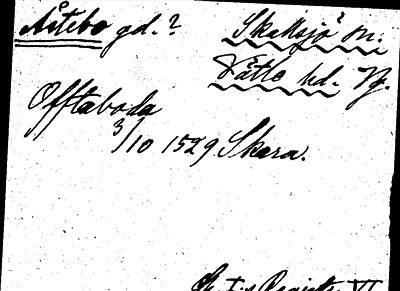 Åstebo gd.? Skallsjö sn.
Vättle hd. Vg.
Offtaboda
3/10 1529 Skara.